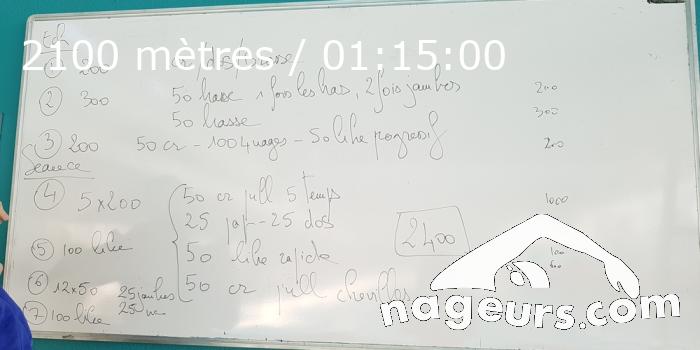 Ech
2100 mètres / 01:15:00
① 200 cr/dos/brasse
② 300 50 brasse 1 fois les bras, 2 fois jambes 200
50 brasse 300
③ 200 50 cr - 100 4 nages - 50 libre progressif 200
Séance
④ 5 x 200 50 cr pull 5 temps 1000
25 pap - 25 dos
2400
⑤ 100 libre 50 libre rapide 100
⑥ 12x50 25 jambes 50 cr pull chevilles 600
25
⑦ 100 libre
nageurs.com